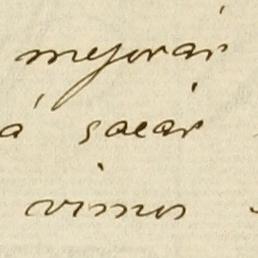 mejorár
á sacár
vimos